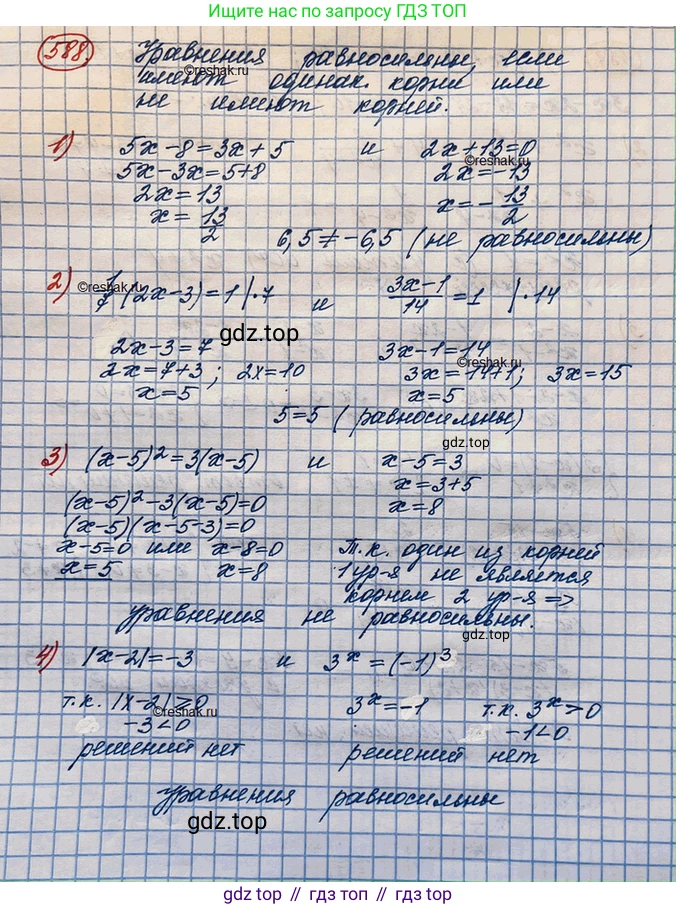 Ищите нас по запросу ГДЗ ТОП
588.
Уравнения равносильны, если
имеют одинак. корни или
не имеют корней.
©reshak.ru
1) 5x-8=3x+5 и 2x+13=0
©reshak.ru
5x-3x=5+8 2x=-13
2x=13 x=-13/2
x=13/2
6,5≠-6,5 (не равносильны)
2) 1/7(2x-3)=1 |·7 и (3x-1)/14=1 |·14
©reshak.ru
gdz.top
2x-3=7 3x-1=14
©reshak.ru
2x=7+3; 2x=10 3x=14+1; 3x=15
x=5 x=5
5=5 (равносильны)
gdz.top
3) (x-5)²=3(x-5) и x-5=3
(x-5)²-3(x-5)=0 x=3+5
(x-5)(x-5-3)=0 x=8
x-5=0 или x-8=0 Т.к. один из корней
x=5 x=8 1 ур-я не является
корнем 2 ур-я =>
уравнения не равносильны.
gdz.top
4) |x-2|=-3 и 3ˣ=(-1)³
©reshak.ru
т.к. |x-2|≥0 3ˣ=-1 т.к. 3ˣ>0
©reshak.ru
-3<0 -1<0
решений нет решений нет
уравнения равносильны
gdz.top
gdz.top // гдз топ // gdz.top